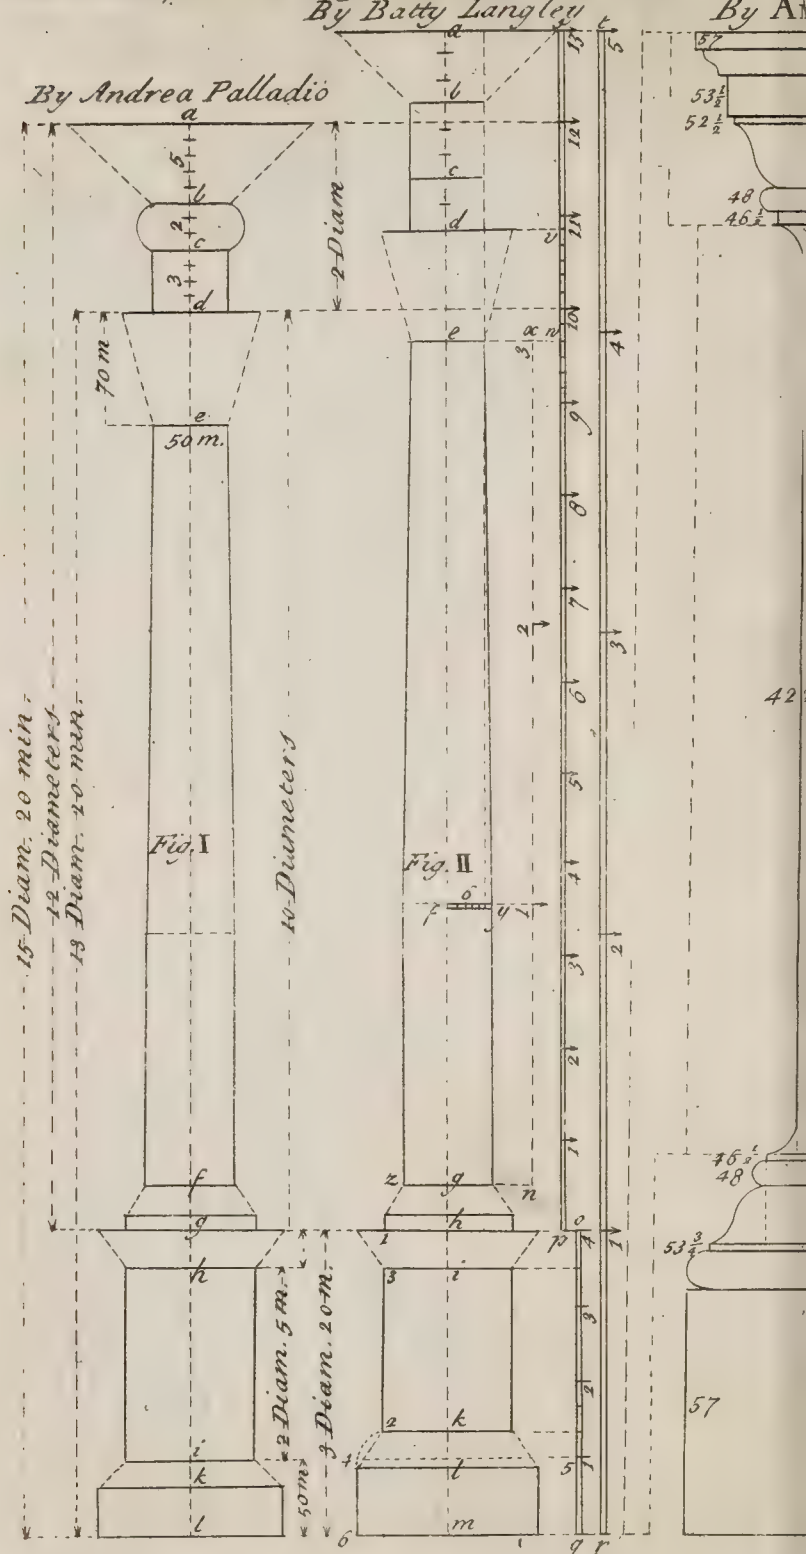 By Batty Langley
By A
By Andrea Palladio
a
5
b
2
c
3
d
70 m
e
50 m.
Fig. I
f
g
h
i
k
l
15 Diam. 20 min.
12 Diameters
13 Diam. 20 min.
10 Diameters
2 Diam
2 Diam. 5 m.
50 m
3 Diam. 20 m.
a
b
c
d
v
e
x
n
3
2
Fig. II
6
f
y
1
z
g
n
h
1
p
o
3
i
2
k
4
l
5
6
m
q
r
s
t
13
12
11
10
9
8
7
6
5
4
3
2
1
5
4
3
2
1
4
3
2
1
57
53 1/2
52 1/2
48
46 1/2
42
46 1/2
48
53 3/4
57